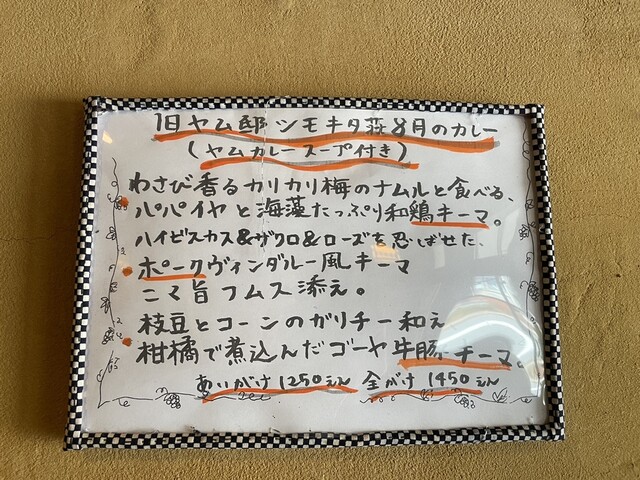 旧ヤム邸シモキタ荘8月のカレー
(ヤムカレースープ付き)
わさび香るカリカリ梅のナムルと食べる、
パパイヤと海藻たっぷり和鶏キーマ。
ハイビスカス&ザクロ&ローズを忍ばせた、
ポークヴィンダルー風キーマ
ゴマ旨フムス添え。
枝豆とコーンのガリチー和え
柑橘で煮込んだゴーヤ牛豚キーマ。
あいがけ1250えん 全がけ1450えん